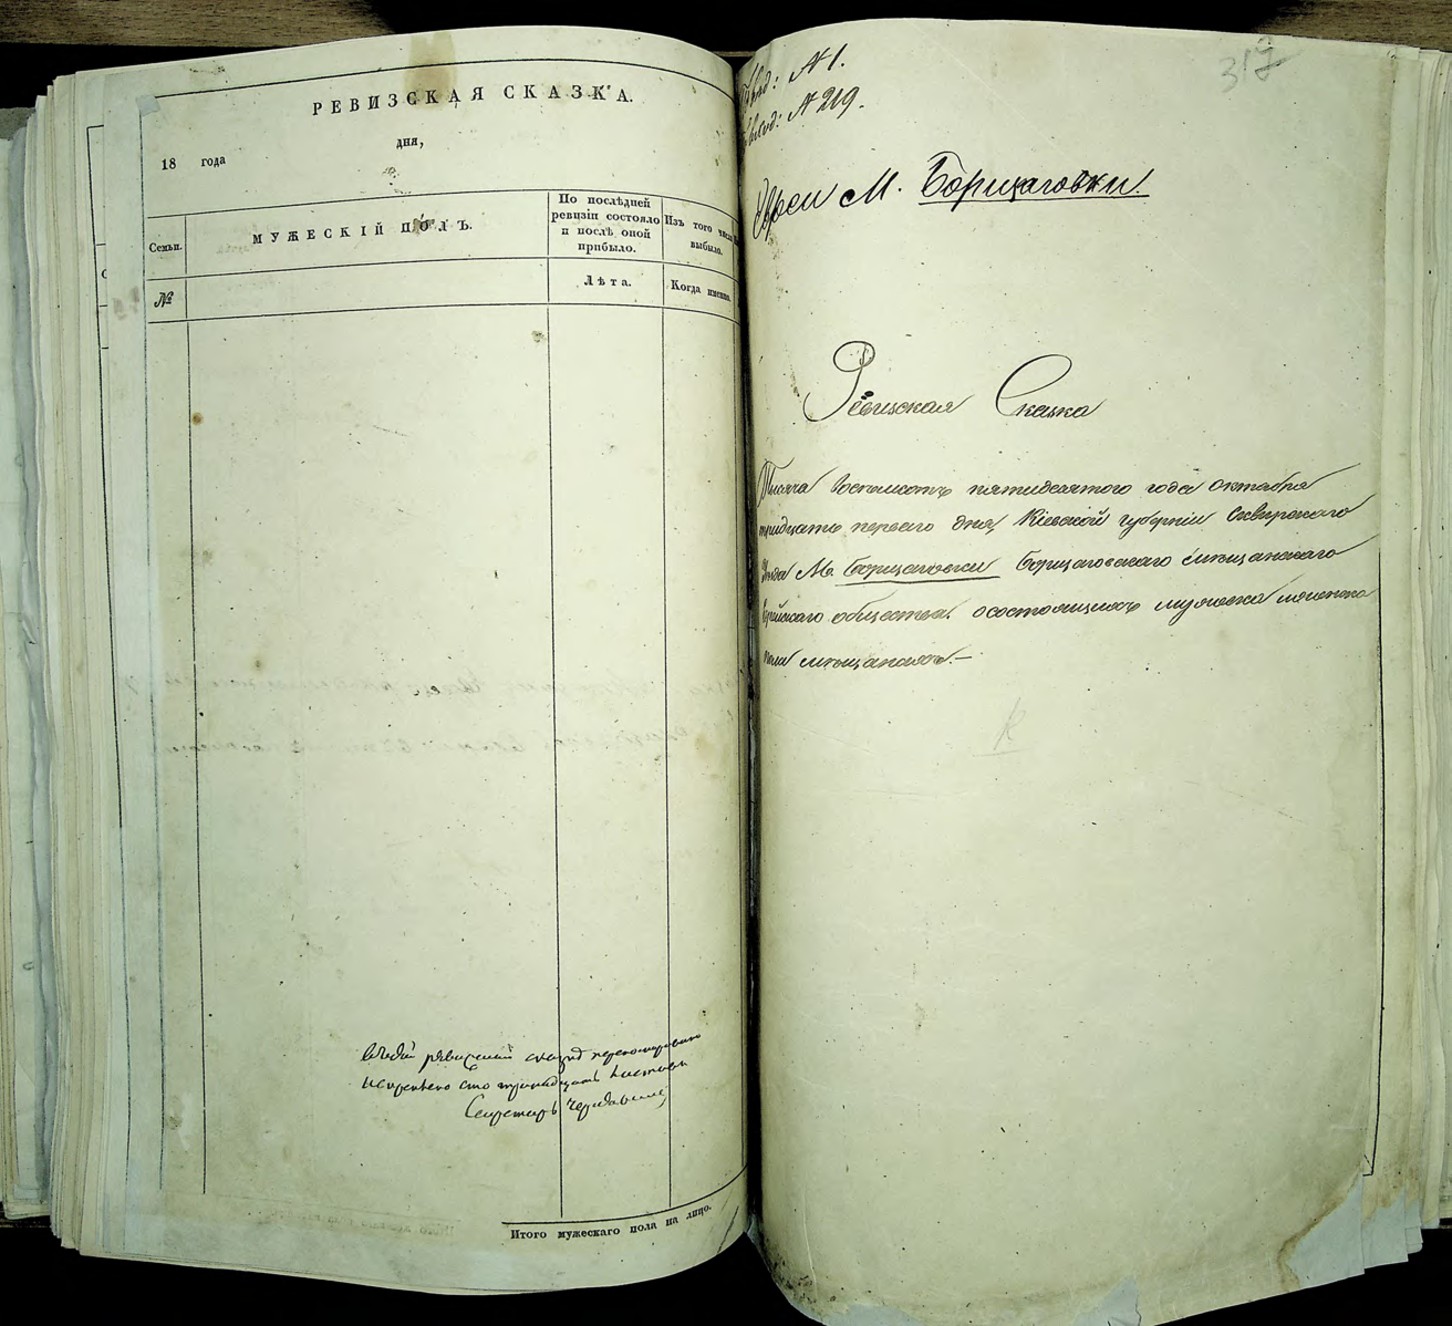 РЕВИЗСКАЯ СКАЗКА.
дня,
18 года
Семьи.
МУЖЕСКІЙ ПОЛЪ.
По послѣдней
ревизіи состояло
и послѣ оной
прибыло.
Изъ того числа
выбыло.
№
Лѣта.
Когда именно.
ревизской сказкѣ перенумеровано
сто тринадцать листовъ
Секретарь
Итого мужескаго пола на лицо.
№ 1.
№ 219.
317
Евреи М. Борщаговки.
Ревизская Сказка
Тысяча восемьсотъ пятидесятого года октября
тридцать первого дня, Кіевской губерніи Сквирского
Уѣзда М. Борщаговки Борщаговскаго мѣщанскаго
Еврейскаго общества. о состоящихъ мужеска женска
пола мѣщанахъ.—